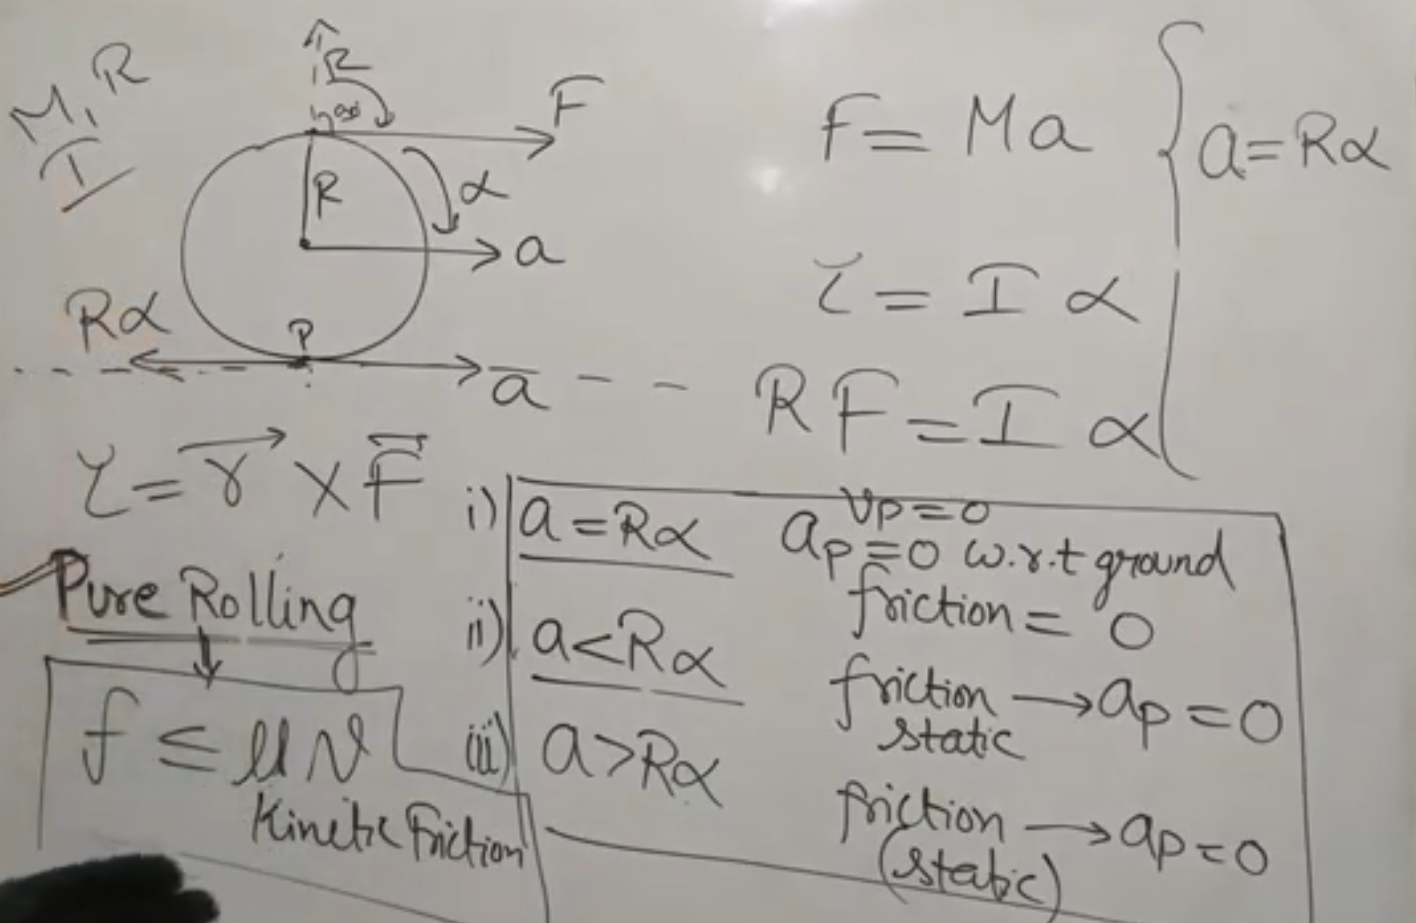 M, R
I
R
90°
F
R
α
a
Rα
P
a
F = Ma
a = Rα
τ = I α
RF = I α
τ = r⃗ × F⃗
Pure Rolling
f ≤ μN
Kinetic Friction
i) a = Rα vp = 0
ap = 0 w.r.t ground
friction = 0
ii) a < Rα friction → ap = 0
static
iii) a > Rα friction → ap = 0
(static)